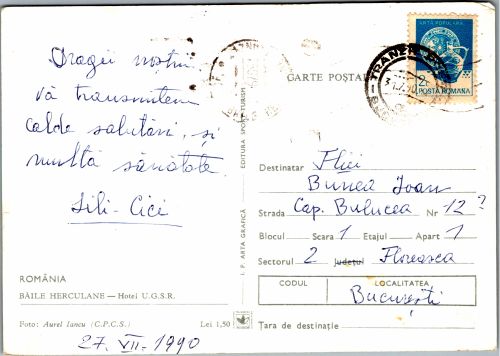 Dragii noștri
vă transmitem
calde salutări, și
multă sănătate.
Lili-Cici
ROMÂNIA
BĂILE HERCULANE — Hotel U.G.S.R.
Foto: Aurel Iancu (C.P.C.S.) Lei 1,50
27. VII. 1990
I. P. ARTA GRAFICĂ
EDITURA SPORT-TURISM
CARTE POȘTALĂ
ARTA POPULARA
POSTA ROMANA
Destinatar Fliei
Bunea Ioan
Strada Cap. Bulucea Nr 12?
Blocul Scara 1 Etajul Apart 1
Sectorul 2 Județul Floreasca
CODUL LOCALITATEA
București
Țara de destinație